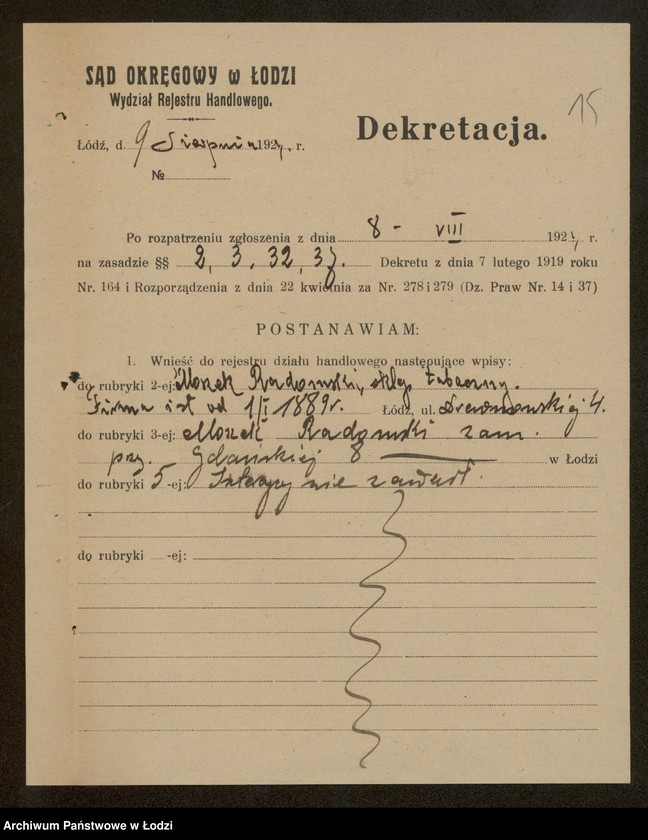 15
SĄD OKRĘGOWY w ŁODZI
Wydział Rejestru Handlowego.
Dekretacja.
Łódź, d. 9 Sierpnia 1924. r.
№
Po rozpatrzeniu zgłoszenia z dnia 8 - VIII 1924. r.
na zasadzie §§ 2, 3, 32, 37. Dekretu z dnia 7 lutego 1919 roku
Nr. 164 i Rozporządzenia z dnia 22 kwietnia za Nr. 278 i 279 (Dz. Praw Nr. 14 i 37)
POSTANAWIAM:
1. Wnieść do rejestru działu handlowego następujące wpisy:
do rubryki 2-ej: Moszek Radomski, sklep tabaczny.
Firma ist od 1/I 1889 r. Łódź, ul. Drewnowskiej 4.
do rubryki 3-ej: Moszek Radomski zam.
przy. Gdańskiej 8 w Łodzi
do rubryki 5-ej: Intercyzy nie zawarł.
do rubryki -ej:
Archiwum Państwowe w Łodzi